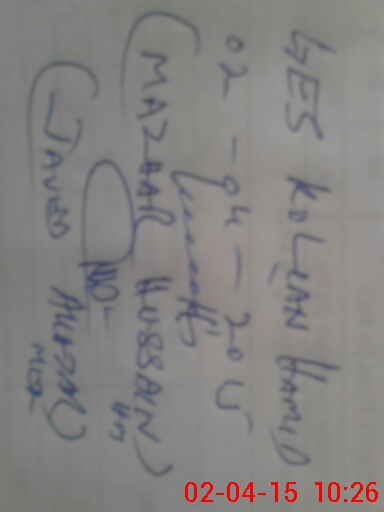 GES KOLIAN HAMID
02-04-2015
(MAZHAR HUSSAIN)
HM
(JAVED HUSSAIN)
02-04-15 10:26